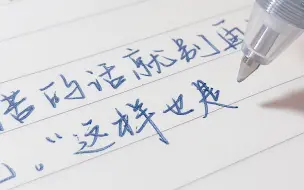 苦的话就别再
。”这样也是